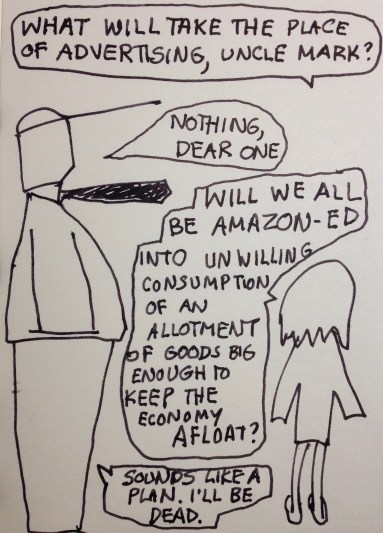 WHAT WILL TAKE THE PLACE
OF ADVERTISING, UNCLE MARK?
NOTHING,
DEAR ONE
WILL WE ALL
BE AMAZON-ED
INTO UNWILLING
CONSUMPTION
OF AN
ALLOTMENT
OF GOODS BIG
ENOUGH TO
KEEP THE
ECONOMY
AFLOAT?
SOUNDS LIKE A
PLAN. I'LL BE
DEAD.